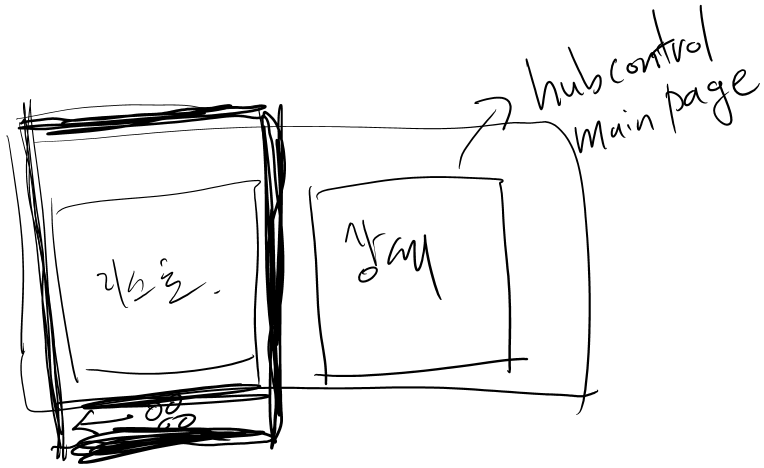 hub control
main page
리스트.
상세